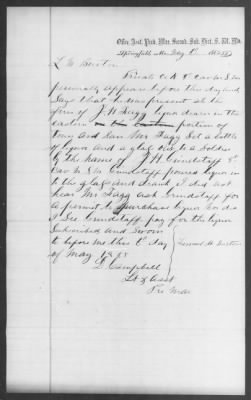 Office Asst. Prov. Mar. Second Sub. Dist. S. W. Mo.
Springfield Mo May 8th 1865
Private Co K 8th Cav M S M
personally appears before me and
says that he was present at the
firm of J H Fagg liquor dealer in the
eastern portion of
and saw Mr Fagg set a bottle
of liquor and a glass out to a Soldier
by the name of J H Grindstaff 8th
Cav M S M Grindstaff poured liquor in
to the glass and drank I did not
hear Mr Fagg ask Grindstaff for
a permit to purchase liquor nor did
I see Grindstaff pay for the liquor
Subscribed and Sworn
to before me this 8th day
of May 1865
L Campbell
Lt & Asst
Pro Mar